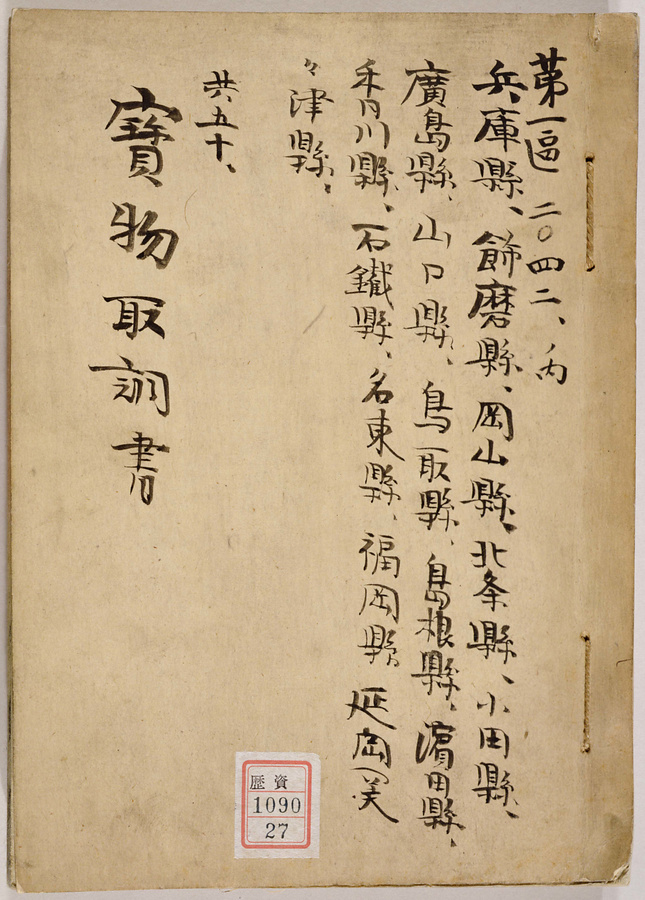 第一區 二〇四二、丙
兵庫縣、飾磨縣、岡山縣、北条縣、小田縣、
廣島縣、山口縣、鳥取縣、島根縣、濵田縣、
香川縣、石鐵縣、名東縣、福岡縣 延岡 美
々津縣、
共五十、
寶物取調書
歴資
1090
27